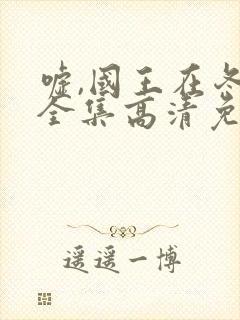 嘘,国王在冬
全集高清免
遥遥一博